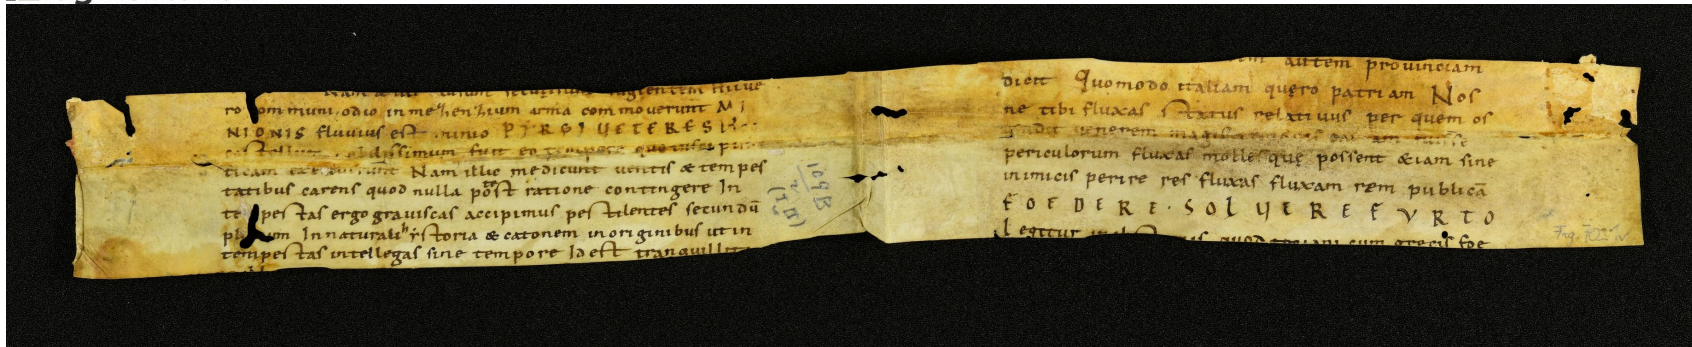 ro communi odio in me henhium arma commoverunt MI
NIONIS fluvius est minio PYRGI VETERES
castellum nobilissimum fuit eo tempore quo tusci pira
Nam illic me dicunt ventis & tempes
tatibus carens quod nulla post ratione contingere In
te pestas ergo graviscas accipimus pestilentes secundū
pl um In naturali hystoria & catonem in originibus ut in
tempestas intellegas sine tempore Id est tranquillit
109B
(1B)
autem provinciam
dicit Quomodo italiam quero patriam Nos
ne tibi fluxas status relativus per quem os
tendit venerem
periculorum fluxas molles quę possent &iam sine
inimicis perire res fluxas fluxam rem publicā
FOEDERE · SOLVERE FVRTO
Legitur quod troiani cum grecis foe
Frg. 702 1v